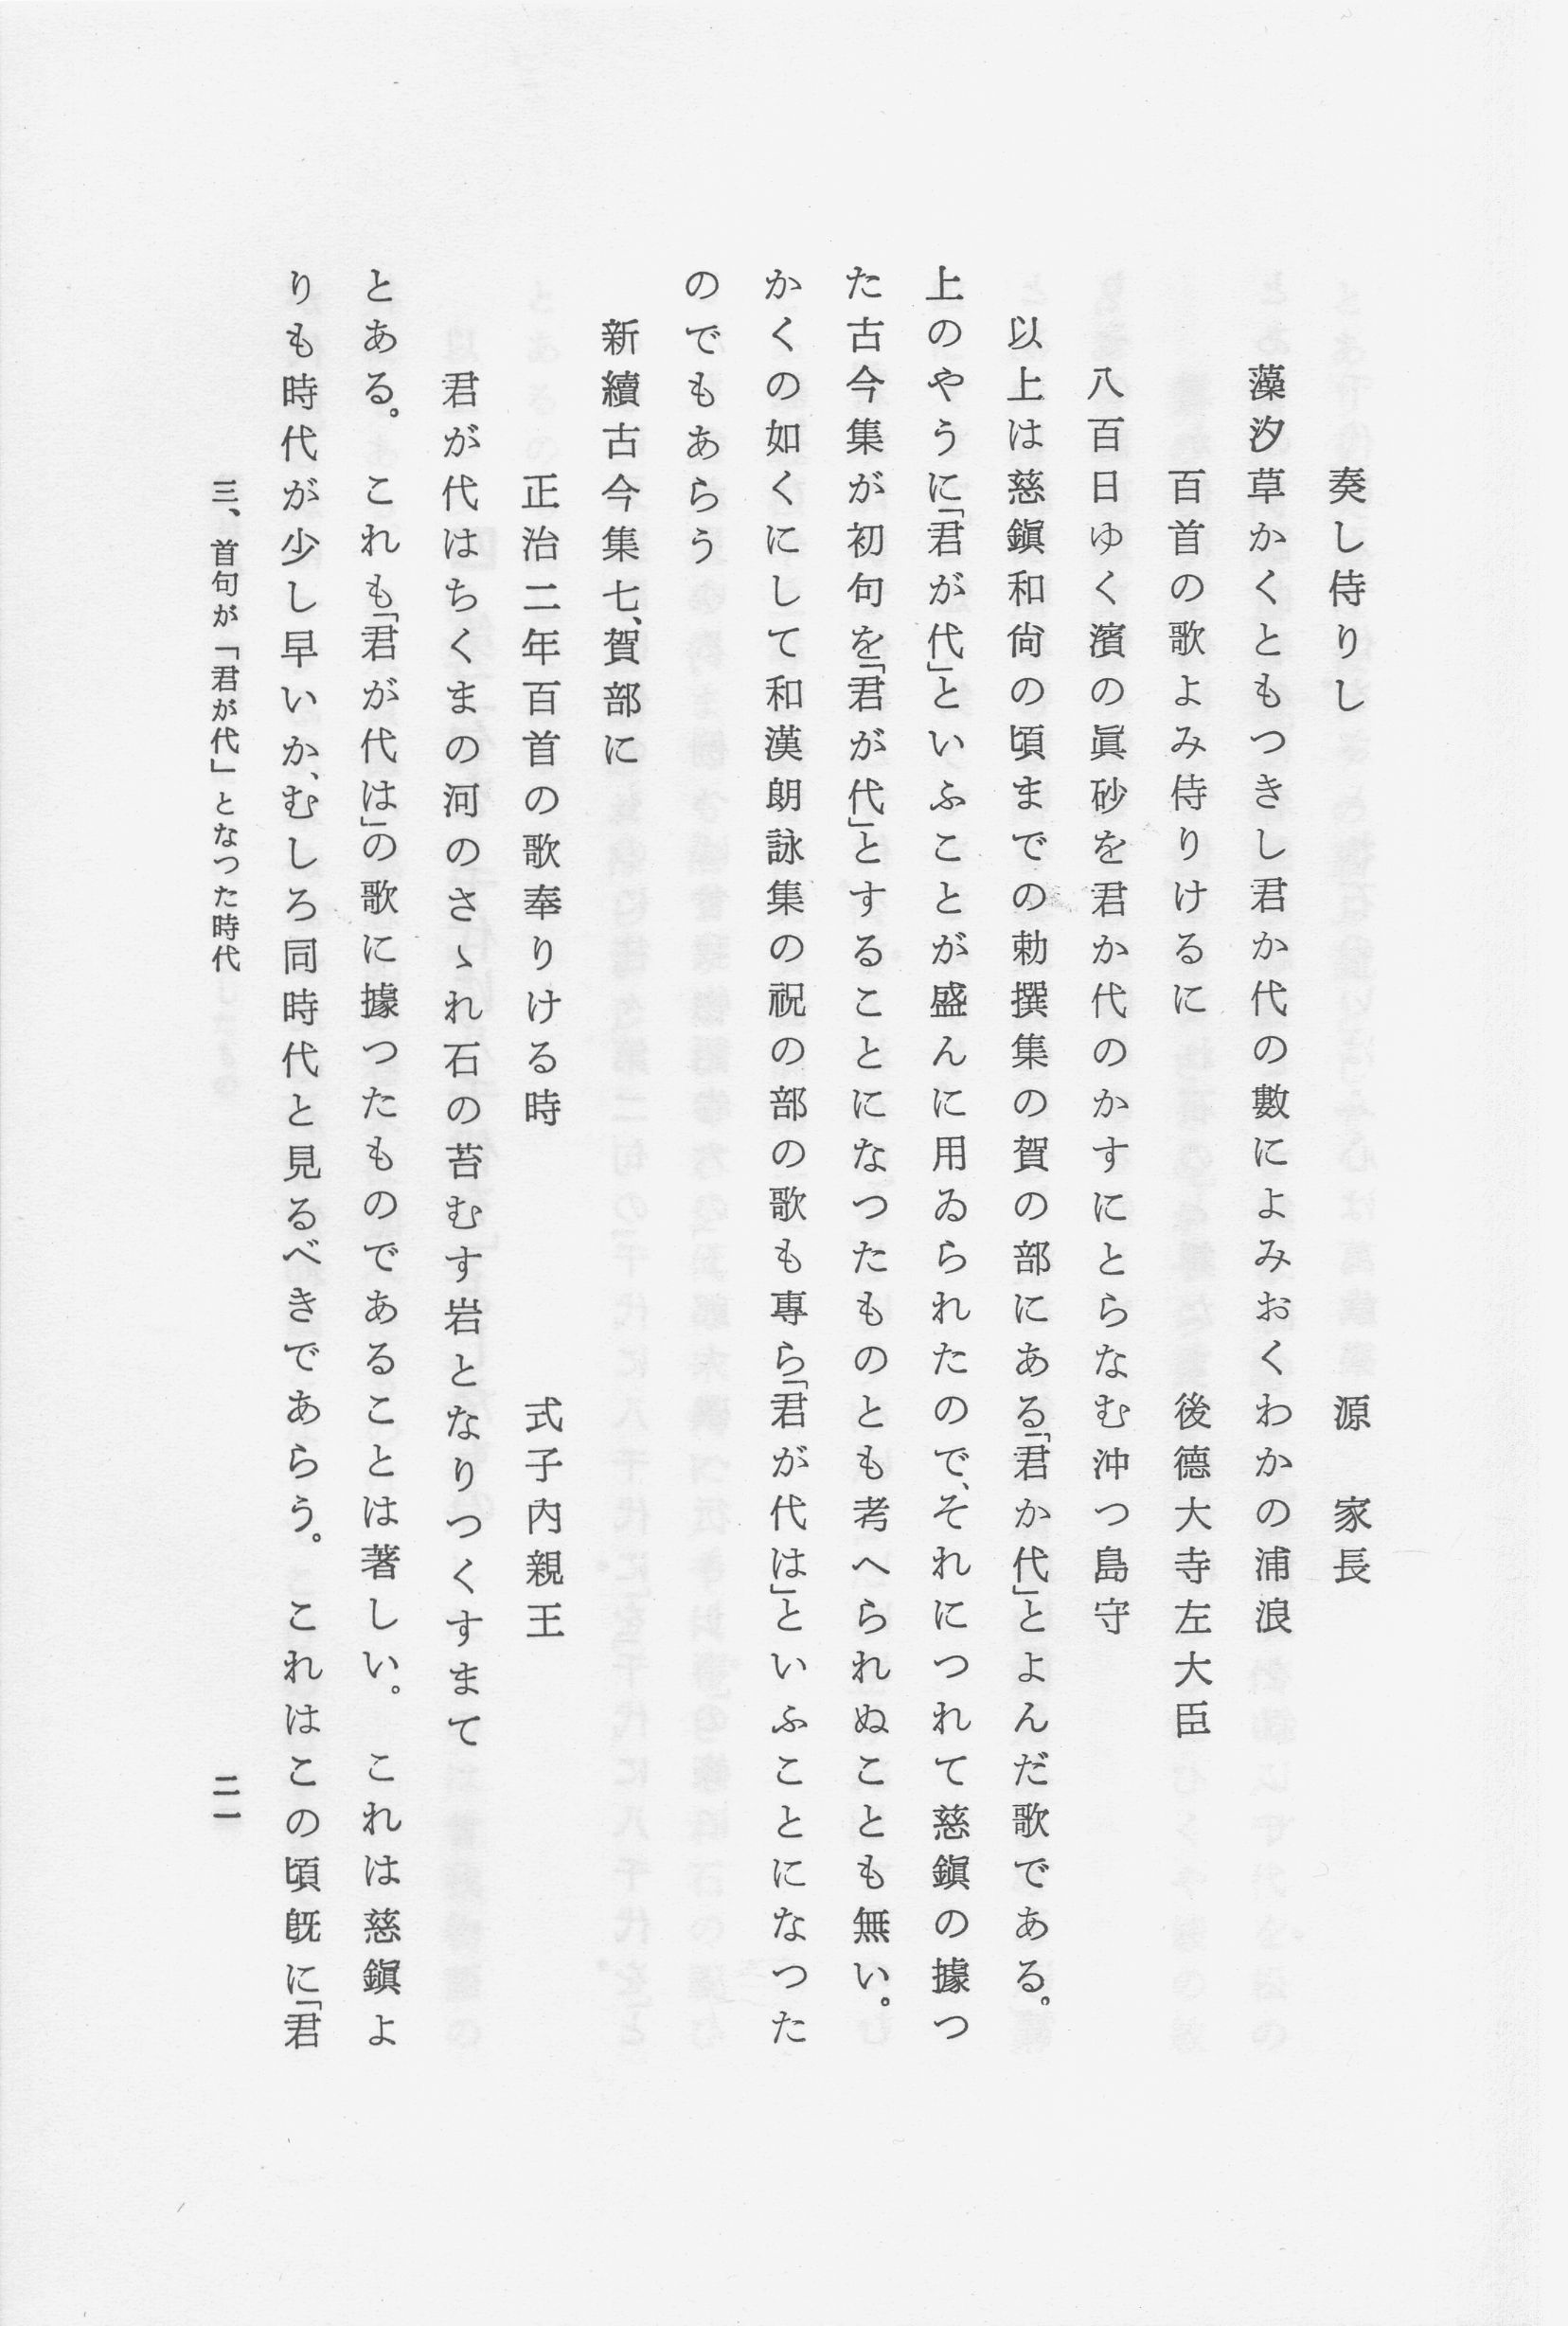 奏し侍りし　源　家長
藻汐草かくともつきし君か代の數によみおくわかの浦浪
百首の歌よみ侍りけるに　後德大寺左大臣
八百日ゆく濱の眞砂を君か代のかすにとらなむ沖つ島守
以上は慈鎭和尙の頃までの勅撰集の賀の部にある「君か代」とよんだ歌である。
上のやうに「君が代」といふことが盛んに用ゐられたので、それにつれて慈鎭の據つ
た古今集が初句を「君が代」とすることになつたものとも考へられぬことも無い。
かくの如くにして和漢朗詠集の祝の部の歌も專ら「君が代は」といふことになつた
のでもあらう
新續古今集七、賀部に
正治二年百首の歌奉りける時　式子內親王
君が代はちくまの河のさゝれ石の苔むす岩となりつくすまて
とある。　これも「君が代は」の歌に據つたものであることは著しい。　これは慈鎭よ
りも時代が少し早いか、むしろ同時代と見るべきであらう。　これはこの頃旣に「君
三、首句が「君が代」となつた時代　二一